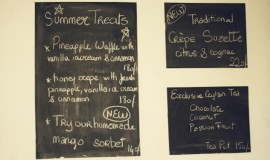 Summer Treats
* Pineapple Waffle with
vanilla icecream & cinnamon
180/-
* honey crepe with fresh
pineapple, vanilla ice cream
& cinnamon
180/-
NEW
* Try our homemade
mango sorbet
NEW
Traditional
Crèpe Suzette
citrus & cognac
Exclusive Ceylon Tea
Chocolate
Coconut
Passion Fruit
Tea Pot 150/-